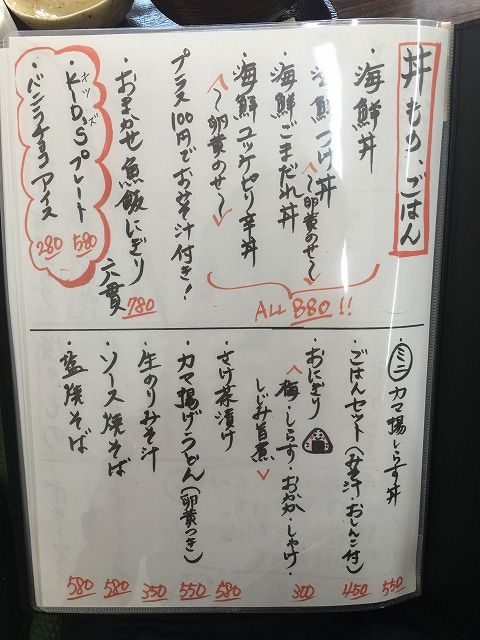 丼もの、ごはん
・海鮮丼
・海鮮つけ丼
〜卵黄のせ〜
・海鮮ごまだれ丼
・海鮮ユッケピリ辛丼
〜卵黄のせ〜
ALL 880!!
プラス100円でお味噌汁付き!
・おまかせ魚飯にぎり
六貫 780
・KIDSプレート 580
キッズ
・バニラチョコアイス 280
・ミニカマ揚しらす丼 550
・ごはんセット(みそ汁おしんこ付) 450
・おにぎり 300
梅・しらす・おかか・しゃけ・
しじみ旨煮
・さけ茶漬け 580
・カマ揚げうどん(卵黄つき) 550
・生のりみそ汁 350
・ソース焼そば 580
・塩焼そば 580